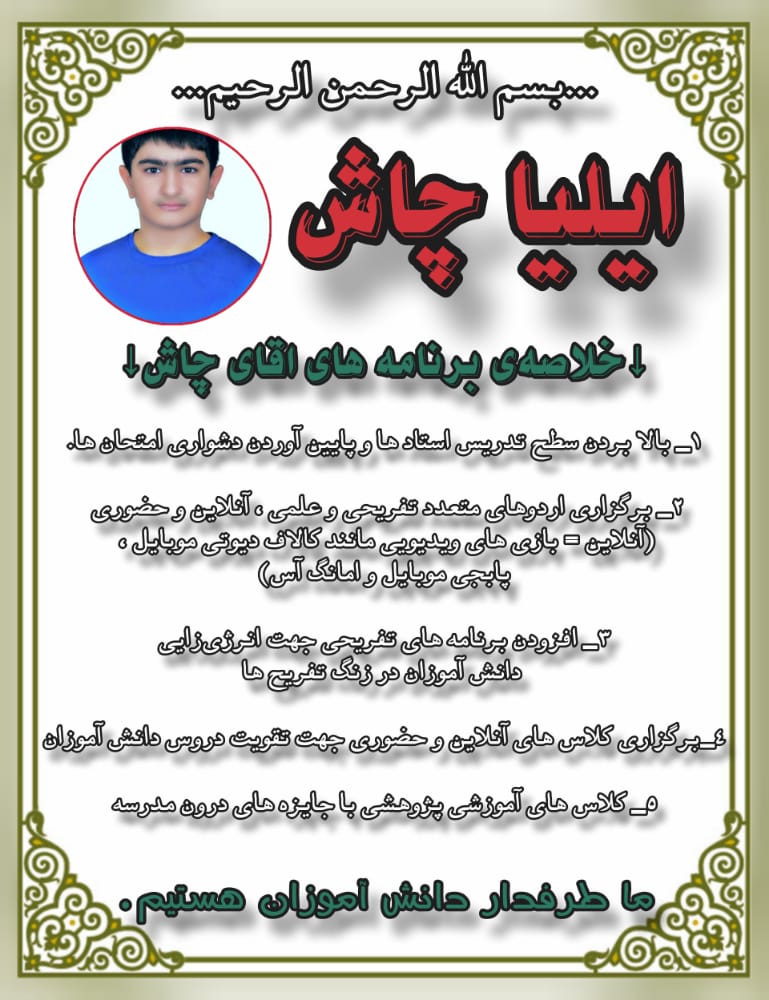 ...بسم الله الرحمن الرحیم...
ایلیا چاش
↓خلاصه‌ی برنامه های اقای چاش↓
۱_ بالا بردن سطح تدریس استاد ها و پایین آوردن دشواری امتحان ها.
۲_ برگزاری اردوهای متعدد تفریحی و علمی ، آنلاین و حضوری
(آنلاین = بازی های ویدیویی مانند کالاف دیوتی موبایل ،
پابجی موبایل و امانگ آس)
۳_ افزودن برنامه های تفریحی جهت انرژی‌زایی
دانش آموزان در زنگ تفریح ها
٤_برگزاری کلاس های آنلاین و حضوری جهت تقویت دروس دانش آموزان
۵_ کلاس های آموزشی پژوهشی با جایزه های درون مدرسه
ما طرفدار دانش آموزان هستیم.